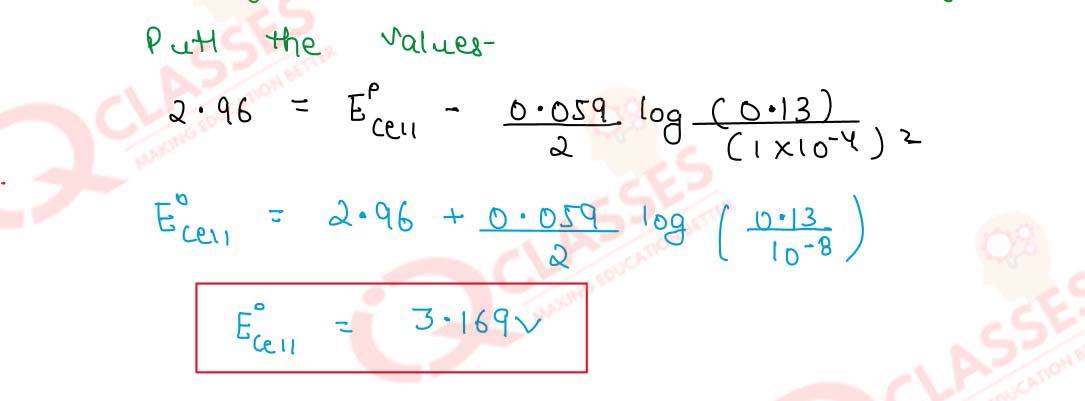 Putt the values-
2.96 = E°cell - 0.059/2 log (0.13)/(1×10⁻⁴)²
E°cell = 2.96 + 0.059/2 log (0.13/10⁻⁸)
E°cell = 3.169v
CLASSES
MAKING EDUCATION BETTER
CLASSES
MAKING EDUCATION BETTER
CLASSES
EDUCATION BETTER